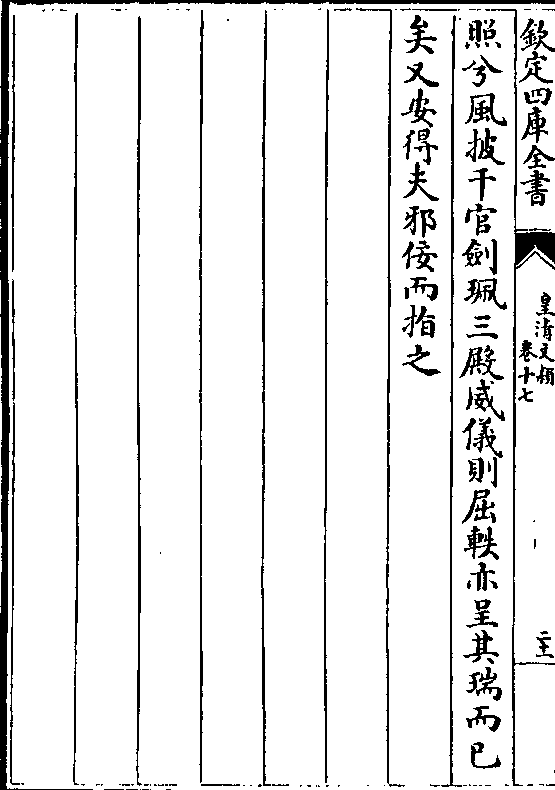 欽定四庫全書
皇清文穎
卷十七
照兮風披千官劍珮三殿威儀則屈軼亦呈其瑞而已
矣又安得夫邪佞而指之